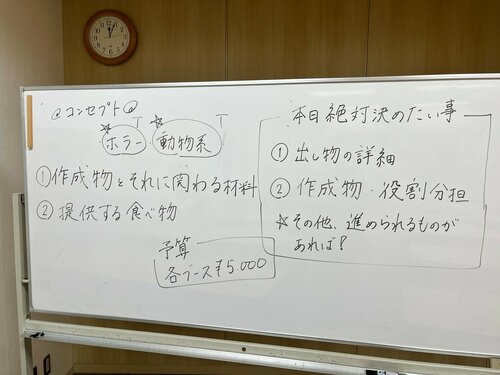 @コンセプト@
☆ホラー ☆動物系
①作成物とそれに関わる材料
② 提供する食べ物
予算
各ブース¥5,000
本日絶対決めたい事
① 出し物の詳細
② 作成物・役割分担
☆その他、進められるものが
あれば?